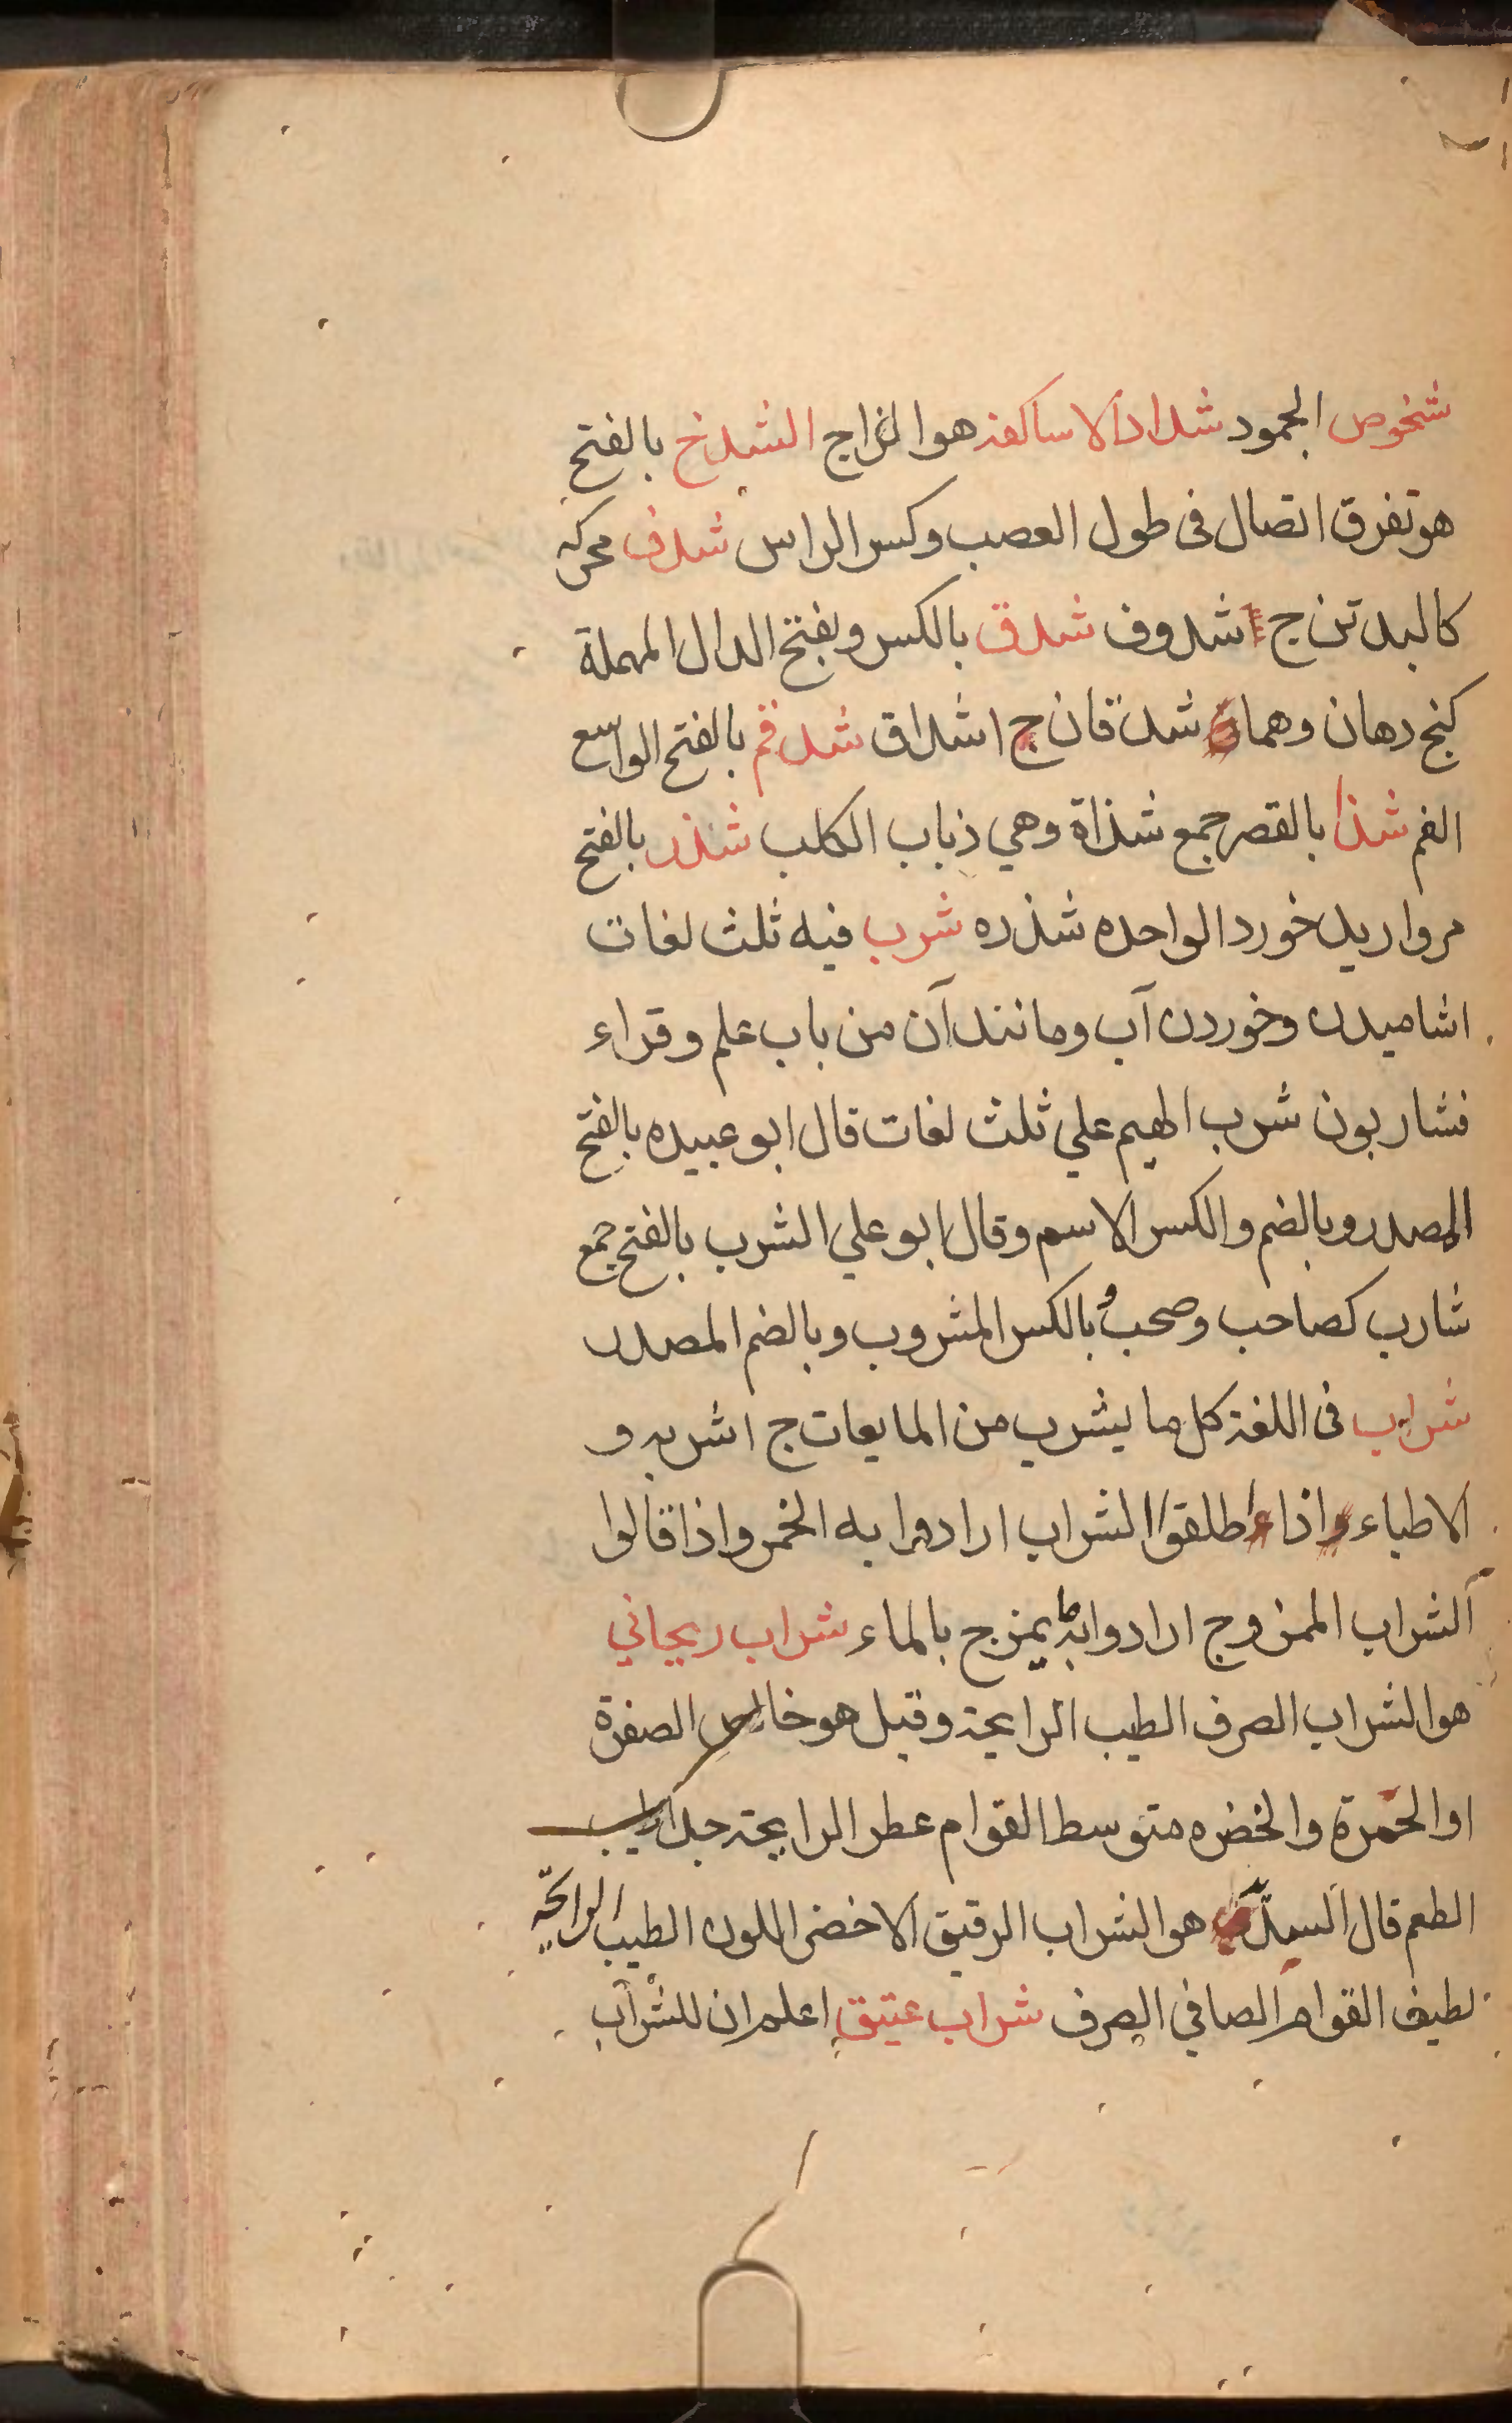 شخوص الجمود شداد الاساكفة هو الزاج الشدخ بالفتح
هو تفرق اتصال فى طول العصب وكسر الراس شدف محركه
كالبد تن ج شدوف شدق بالكسر وبفتح الدال المهملة
كنج دهان وهما شدقان ج اشداق شدقم بالفتح الواسع
الفم شذا بالقصر جمع شذاة وهي ذباب الكلب شذر بالفتح
مرواريد خورد الواحده شذره شرب فيه ثلث لغات
اشاميدن وخوردن آب ومانند آن من باب علم وقراء
فشاربون شرب الهيم علي ثلث لغات قال ابو عبيده بالفتح
المصدر وبالضم والكسر الاسم وقال ابو علي الشرب بالفتح جمع
شارب كصاحب وصحب وبالكسر المشروب وبالضم المصدر
شراب فى اللغة كل ما يشرب من المايعات ج اشربه و
الاطباء اذا اطلقوا الشراب ارادوا به الخمر واذا قالوا
الشراب الممزوج ارادوا به ما يمزج بالماء شراب ريحاني
هو الشراب الصرف الطيب الرايحة وقيل هو خالص الصفرة
او الحمرة والخضره متوسط القوام عطر الرايحة جدا طيب
الطعم قال السيد هو الشراب الرقيق الاخضر اللون الطيب الرائحة
لطيف القوام الصافي الصرف شراب عتيق اعلم ان للشراب